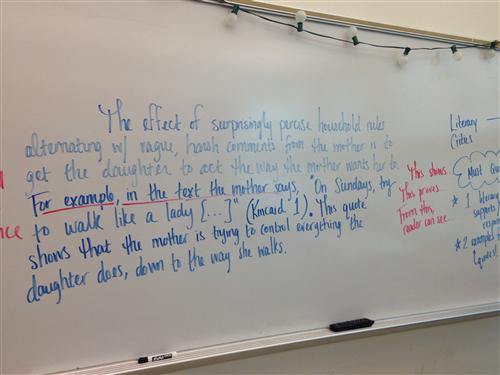 The effect of surprisingly percise household rules
alternating w/ vague, harsh comments from the mother is to
get the daughter to act the way the mother wants her to.
For example, in the text the mother says, "On Sundays, try
to walk like a lady [...]" (Kincaid 1). This quote
shows that the mother is trying to control everything the
daughter does, down to the way she walks.
nce
This shows...
This proves...
From this,
reader can see...
Literary
Critics
Must
* 1 literary
supports
* 2 examples
(quotes)